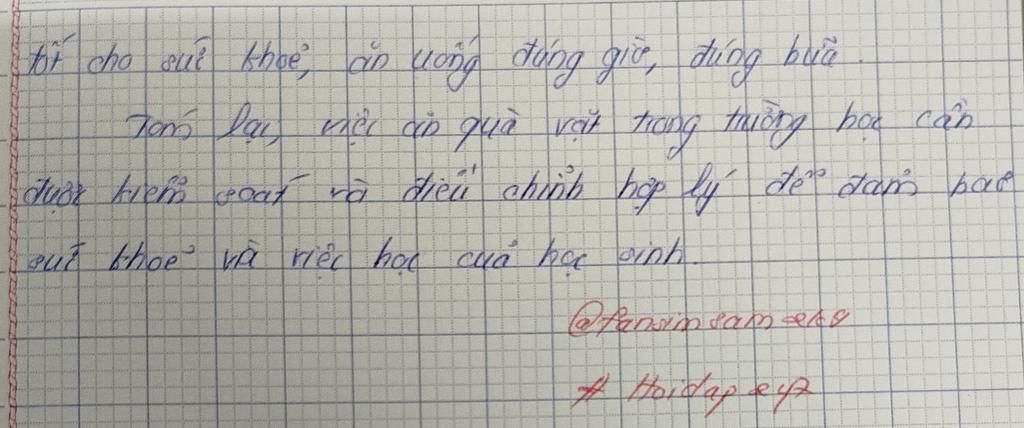 tốt cho sức khoẻ, ăn uống đúng giờ, đúng bữa.
Tóm lại, việc ăn quà vặt trong trường học cần
được kiểm soát và điều chỉnh hợp lý để đảm bảo
sức khoẻ và việc học của học sinh.
# Hoidap